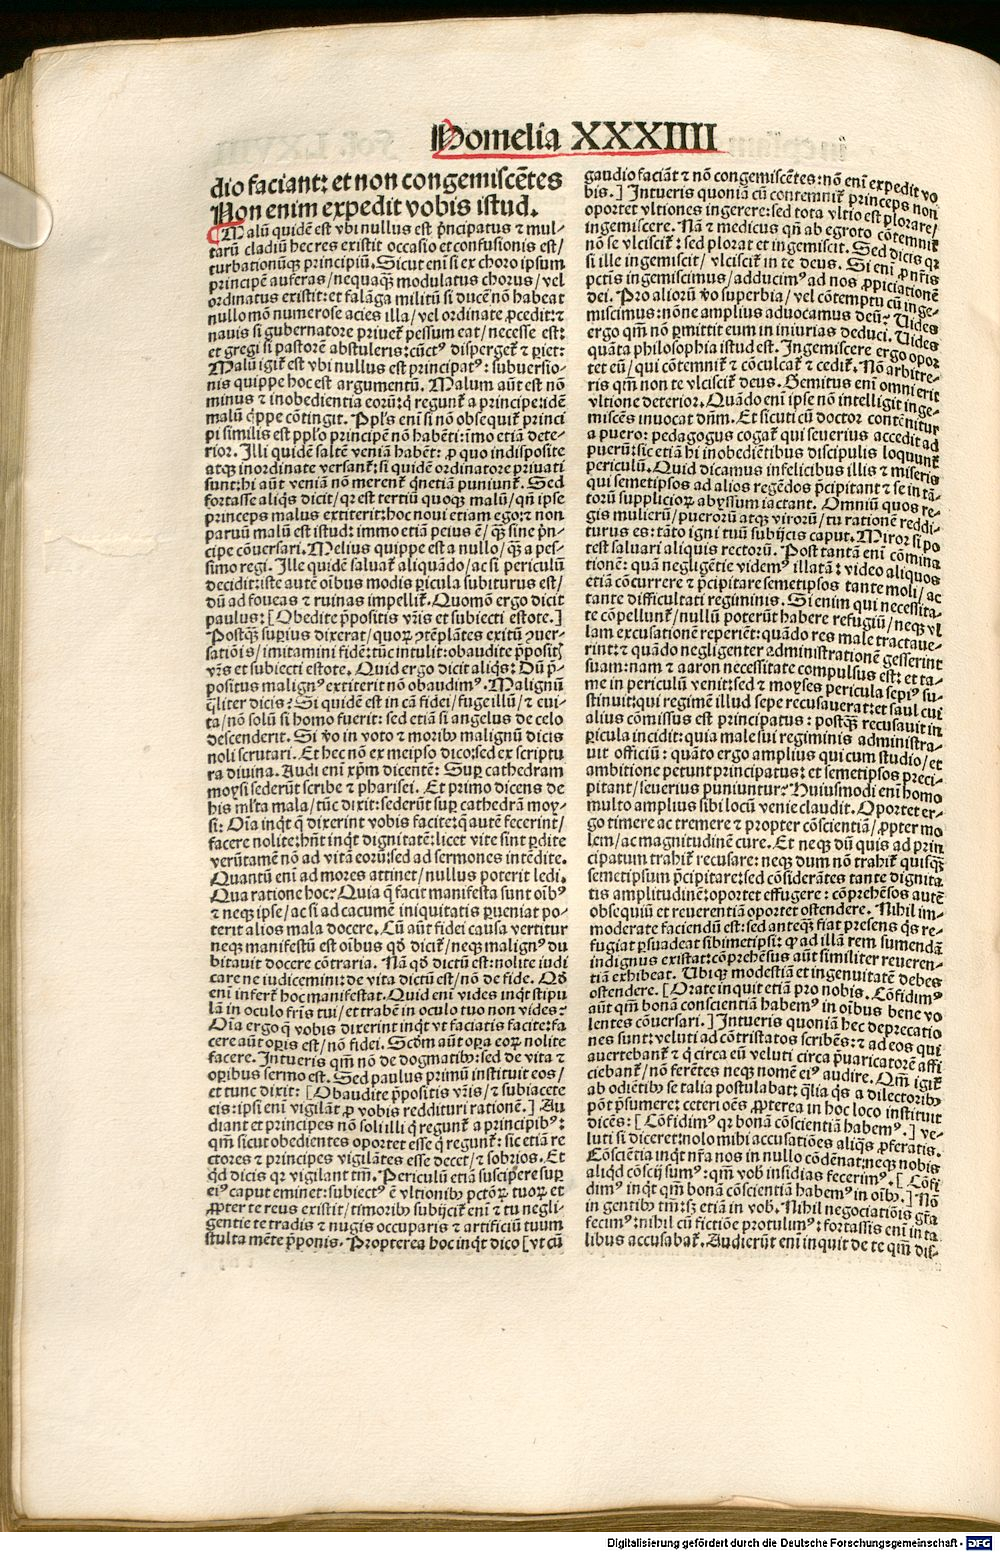 Homelia XXXIIII
dio faciant: et non congemiscētes
Non enim expedit vobis istud.
Malū quidē est vbi nullus est p̄ncipatus ⁊ mul-
tarū cladiū hec res existit occasio et confusionis est/
turbationūqꝫ principiū. Sicut eni si ex choro ipsum
principē auferas/ nequaqꝫ modulatus chorus/ vel
ordinatus existit: et falāga militū si ducē nō habeat
nullo mō numerose acies illa/ vel ordinate ꝓcedit: ⁊
nauis si gubernatore priuet᷑ pessum eat/ necesse est:
et gregi si pastorē abstuleris: cūctꝰ disperget᷑ ⁊ ꝑiet:
Malū igit᷑ est vbi nullus est principatꝰ: subuersio-
nis quippe hoc est argumentū. Malum aūt est nō
minus ⁊ inobedientia eorū: q̇ regunt᷑ a principe: idē
malū q̇ppe cōtingit. Ppl's eni si nō obsequit᷑ princi
pi similis est ppl'o principē nō habēti: īmo etiā dete-
rior. Illi quidē saltē veniā habēt: ꝓ quo indisposite
atqꝫ inordinate versant᷑: si quidē ordinatore priuati
sunt: hi aūt veniā nō merent᷑ q̇netiā puniunt᷑. Sed
fortasse aliq̇s dicit/ qr est tertiū quoqꝫ malū/ qn̄ ipse
princeps malus extiterit: hoc noui etiam ego: ⁊ non
paruū malū est istud: immo etiā peius ē/ qꝫ sine p̄n-
cipe cōuersari. Melius quippe est a nullo/ qꝫ a pes-
simo regi. Ille quidē saluat᷑ aliquādo/ ac si periculū
decidit: iste autē oībus modis ꝑicula subiturus est/
dū ad foueas ⁊ ruinas impellit᷑. Quomō ergo dicit
paulus: [Obedite p̄positis vr̄is et subiecti estote.]
Postqꝫ suꝑius dixerat/ quoꝝ ꝯtēplātes exitū ꝯuer-
satiōis/ imitamini fidē: tūc intulit: obaudite p̄positꝭ
vr̄s et subiecti estote. Quid ergo dicit aliq̇s: Dū p̄-
positus malignꝰ extiterit nō obaudimꝰ. Malignū
q̇liter dicis? Si quidē est in cā fidei/ fuge illū/ ⁊ eui-
ta/ nō solū si homo fuerit: sed etiā si angelus de celo
descenderit. Si v̄o in voto ⁊ moribꝫ malignū dicis
noli scrutari. Et hec nō ex meipso dico: sed ex scriptu
ra diuina. Audi eni xp̄m dicentē: Suꝑ cathedram
moysi sederūt scribe ⁊ pharisei. Et primo dicens de
his ml'ta mala/ tūc dixit: sederūt suꝑ cathedrā moy-
si: Oīa inq̇t q̄ dixerint vobis facite: q̄ autē fecerint/
facere nolite: hn̄t inq̇t dignitatē: licet vite sint ꝑdite
verūtamē nō ad vitā eorū: sed ad sermones intēdite.
Quantū eni ad mores attinet/ nullus poterit ledi.
Qua ratione hoc? Quia q̄ facit manifesta sunt oībꝰ
⁊ neqꝫ ipse/ ac si ad cacumē iniquitatis ꝑueniat po-
terit alios mala docere. Cū aūt fidei causa vertitur
neqꝫ manifestū est oībus qđ dicit᷑/ neqꝫ malignꝰ du
bitauit docere cōtraria. Nā qđ dictū est: nolite iudi
care ne iudicemini: de vita dictū est/ nō de fide. Qđ
eni infert᷑ hoc manifestat. Quid eni vides inq̇t stipu
lā in oculo fr̄is tui/ et trabē in oculo tuo non vides?
Oīa ergo q̄ vobis dixerint inq̇t vt faciatis facite: fa
cere aūt oꝑis est/ nō fidei. Scd̄m aūt oꝑa eoꝝ nolite
facere. Intueris qm̄ nō de dogmatibꝫ: sed de vita ⁊
oꝑibus sermo est. Sed paulus primū instituit eos/
et tunc dixit: [Obaudite p̄positis vr̄is/ ⁊ subiacete
eis: ipsi eni vigilāt ꝓ vobis reddituri rationē.] Au
diant et principes nō soli illi q̇ regunt᷑ a principibꝰ:
qm̄ sicut obedientes oportet esse q̇ regunt᷑: sic etiā re
ctores ⁊ principes vigilātes esse decet/ ⁊ sobrios. Et
qđ dicis qr vigilant tm̄. Periculū etiā suscipere suꝑ
eiꝰ caput eminet: subiectꝰ ē vltionibꝫ pctōꝝ tuoꝝ et
ꝓpter te reus existit/ timoribꝫ subijcit᷑ eni ⁊ tu negli-
gentie te tradis ⁊ nugis occuparis ⁊ artificiū tuum
stulta mēte p̄ponis. Propterea hoc inq̇t dico [vt cū
gaudio faciāt ⁊ nō congemiscētes: nō eni expedit vo
bis.] Intueris quoniā cū contemnit᷑ princeps non
oportet vltiones ingerere: sed tota vltio est plorare/
ingemiscere. Nā ⁊ medicus qn̄ ab egroto cōtemnit᷑
nō se vlciscit᷑: sed plorat et ingemiscit. Sed dicis qr
si ille ingemiscit/ vlciscit᷑ in te deus. Si eni ꝓ nr̄is
pctīs ingemiscimus/ adducimꝰ ad nos ꝓpiciationē
dei. Pro alioru v̄o superbia/ vel cōtemptu cū inge-
miscimus: nōne amplius aduocamus deū? Vides
ergo qm̄ nō ꝑmittit eum in iniurias deduci. Vides
quāta philosophia istud est. Ingemiscere ergo opor
tet eū/ qui cōtemnit᷑ ⁊ cōculcat᷑ ⁊ cedit᷑. Nō arbitre-
ris qm̄ non te vlciscit᷑ deus. Gemitus eni omni erit
vltione deterior. Quādo eni ipse nō intelligit inge-
miscēs inuocat dn̄m. Et sicuti cū doctor contēnitur
a puero: pedagogus cogat᷑ qui seuerius accedit ad
puerū: sic etiā hi inobediētibus discipulis loquunt᷑
periculū. Quid dicamus infelicibus illis ⁊ miseris
qui semetipsos ad alios regēdos p̄cipitant ⁊ se in tā-
torū supplicioꝝ abyssum iactant. Omniū quos re-
gis mulierū/ puerorū atqꝫ virorū/ tu rationē reddi-
turus es: tāto igni tuū subijcis caput. Miror si po
test saluari aliquis rectorū. Post tantā eni cōmina
tionē: quā negligētie videmꝰ illatā: video aliquos
etiā cōcurrere ⁊ p̄cipitare semetipsos tante moli/ ac
tante difficultati regiminis. Si enim qui necessita-
te cōpellunt᷑/ nullū poterūt habere refugiū/ neqꝫ vl
lam excusationē reperiēt: quādo res male tractaue-
rint: ⁊ quādo negligenter administrationē gesserint
suam: nam ⁊ aaron necessitate compulsus est: et ta-
me in periculū venit: sed ⁊ moyses pericula sepiꝰ su-
stinuit: qui regimē illud sepe recusauerat: et saul cui
alius cōmissus est principatus: postqꝫ recusauit in
ꝑicula incidit: quia male sui regiminis administra-
uit officiū: quāto ergo amplius qui cum studio/ et
ambitione petunt principatus: et semetipsos preci-
pitant/ seuerius puniuntur? Huiusmodi eni homo
multo amplius sibi locū venie claudit. Oportet er-
go timere ac tremere ⁊ propter cōscientiā/ ꝓpter mo
lem/ ac magnitudinē cure. Et neqꝫ dū quis ad prin
cipatum trahit᷑ recusare: neqꝫ dum nō trahit᷑ quisqꝫ
semetipsum p̄cipitare: sed cōsiderātes tante dignita
tis amplitudinē: oportet effugere: cōprehēsos autē
obsequiū et reuerentiā oportet ostendere. Nihil im-
moderate faciendū est: sed anteqꝫ fiat presens q̇s re-
fugiat ꝑsuadeat sibimetipsi: ꝙ ad illā rem sumendā
indignus existat: cōprehēsus aūt similiter reueren-
tiā exhibeat. Vbiqꝫ modestiā et ingenuitatē debes
ostendere. [Orate inquit etiā pro nobis. Cōfidimꝰ
aūt qm̄ bonā conscientiā habemꝰ in oībus bene vo
lentes cōuersari.] Intueris quoniā hec deprecatio
nes sunt: veluti ad cōtristatos scribēs: ⁊ ad eos qui
auertebant᷑ ⁊ q̇ circa eū veluti circa p̄uaricatorē affi
ciebant᷑/ nō ferētes neqꝫ nomē eiꝰ audire. Qm̄ igit᷑
ab odiētibꝫ se talia postulabat: q̄lia q̇s a dilectoribꝫ
pōt p̄sumere: ceteri oēs ꝓpterea in hoc loco instituit
dicēs: [Cōfidimꝰ qr bonā cōscientiā habemꝰ.] ve-
luti si diceret: nolo mihi accusatiōes aliq̇s ꝓferatis.
Cōsciētia inq̇t nr̄a nos in nullo cōdēnat: neqꝫ nobis
aliqd cōscij sumꝰ: qm̄ vob̄ insidias fecerimꝰ. [Cōfi
dimꝰ inq̇t qm̄ bonā cōscientiā habemꝰ in oībꝫ.] Nō
in gentibꝫ tm̄: sꝫ etiā in vob̄. Nihil negociatiōis gr̄a
fecimꝰ: nihil cū fictiōe protulimꝰ: fortassis eni in ta
libus accusabat᷑. Audierūt eni inquit de te qm̄ dis-
Digitalisierung gefördert durch die Deutsche Forschungsgemeinschaft - DFG